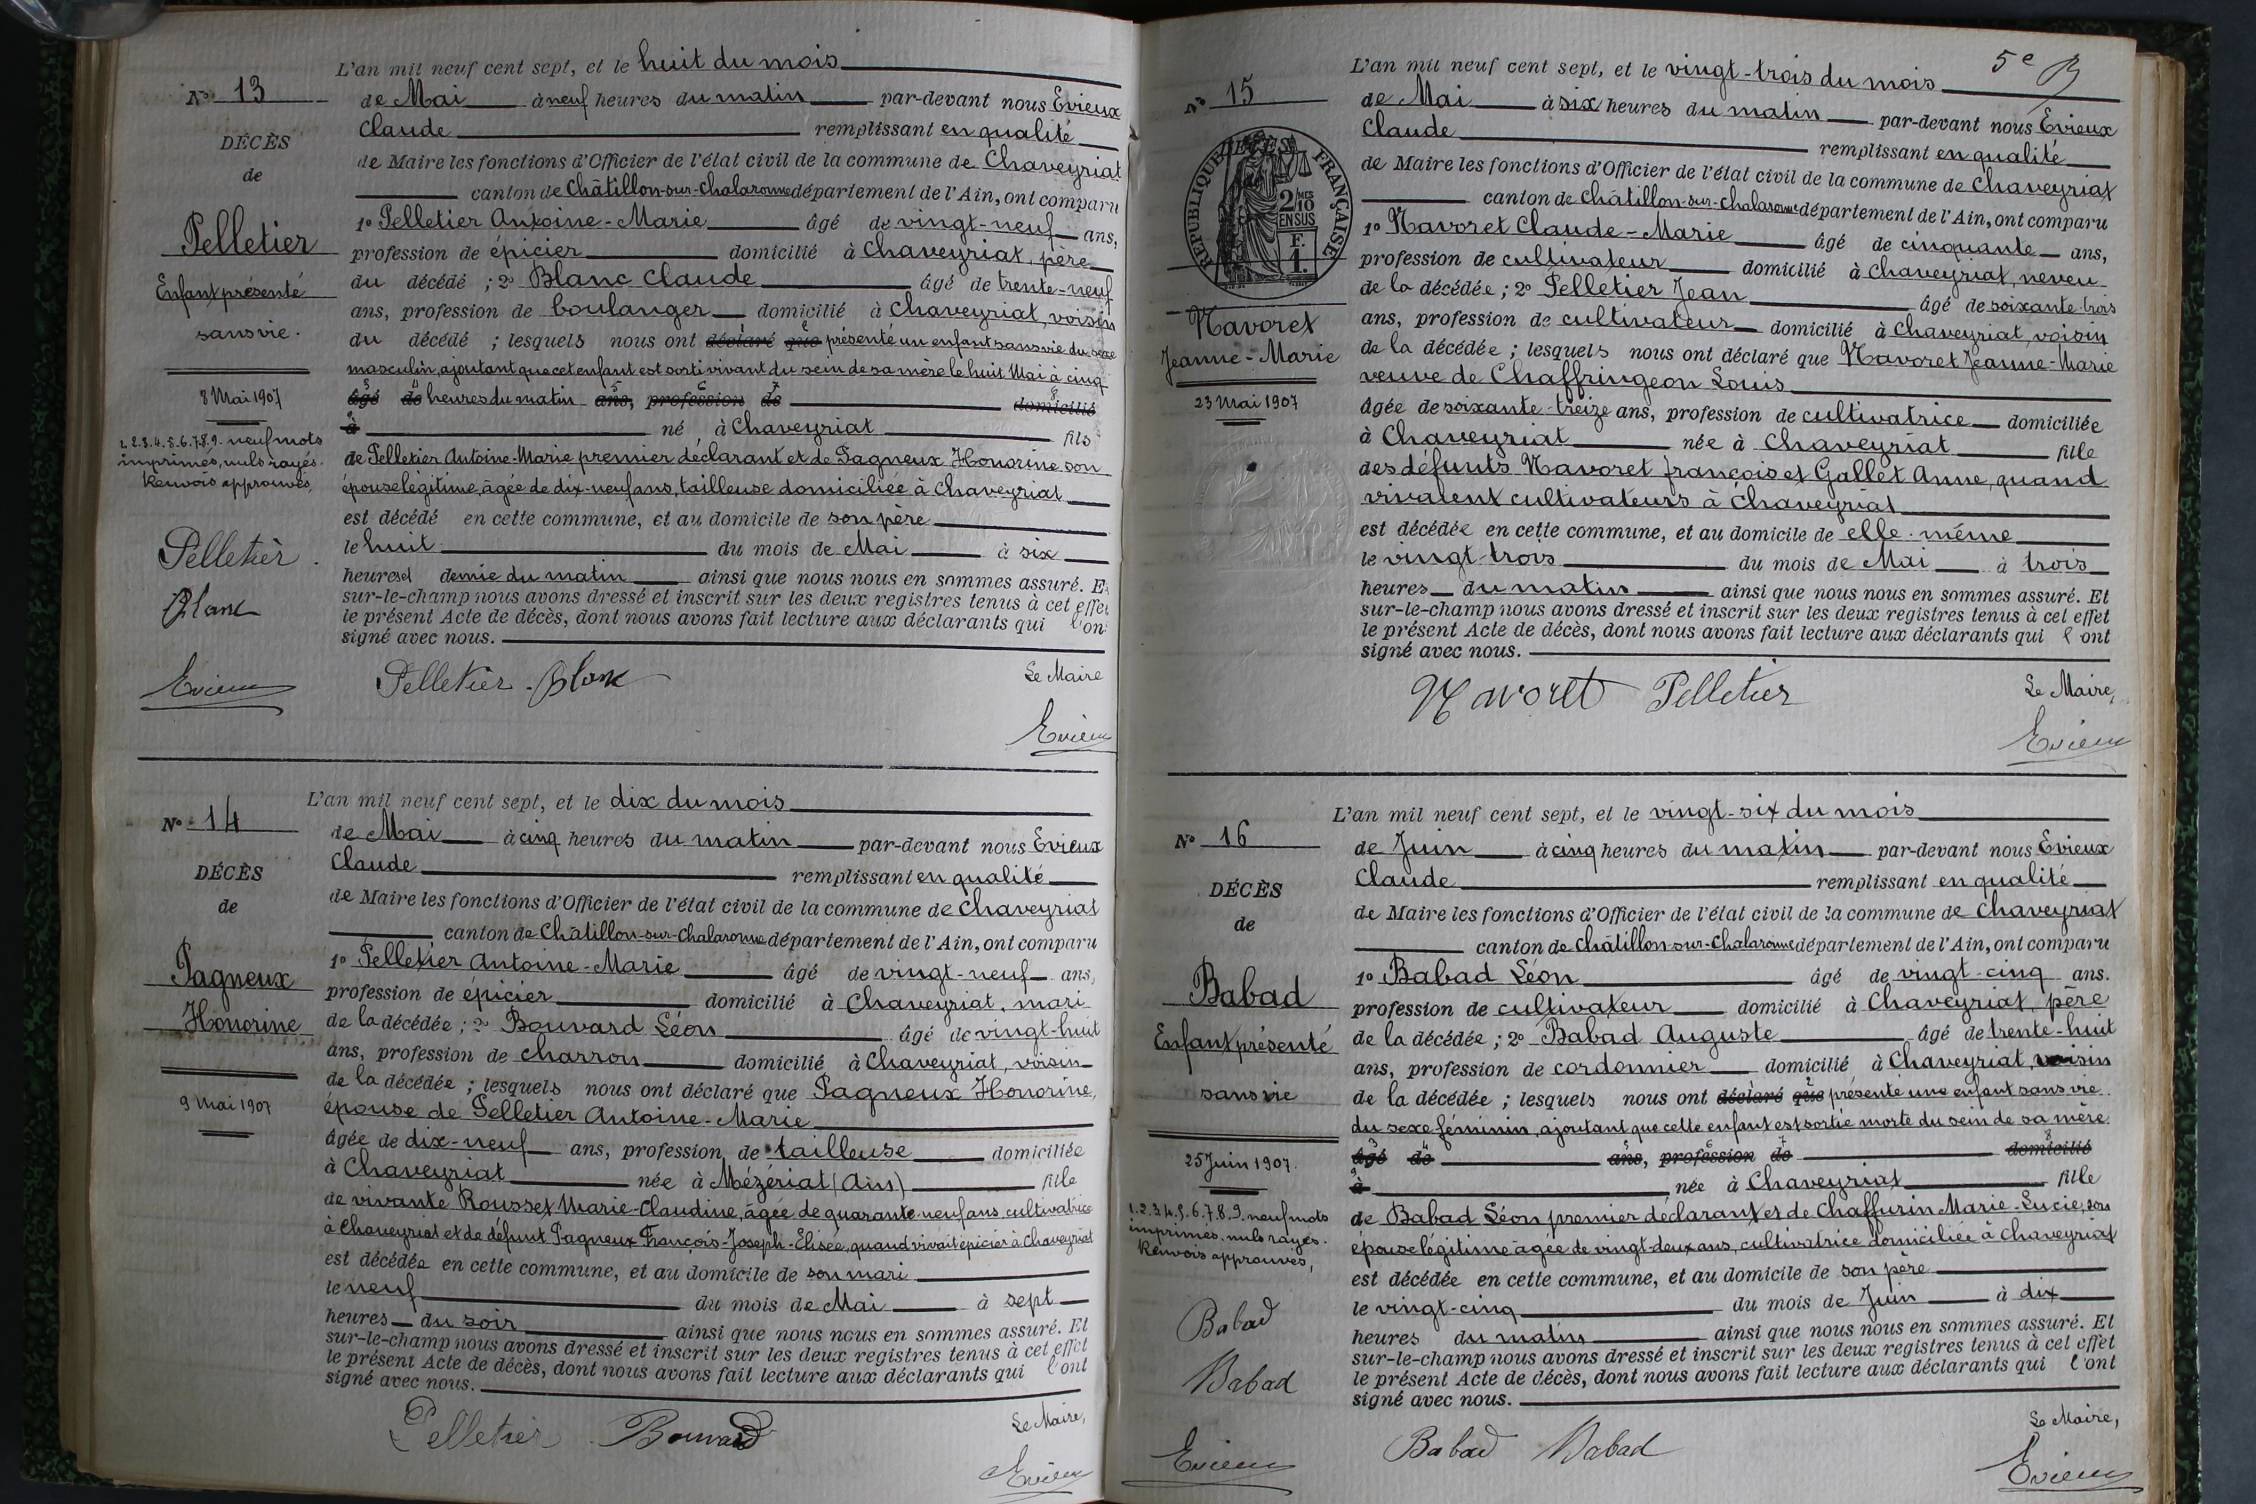 L'an mil neuf cent sept, et le huit du mois
N° 13
de Mai à neuf heures du matin par-devant nous Evieux
Claude remplissant en qualité
DÉCÈS
de Maire les fonctions d'Officier de l'état civil de la commune de Chaveyriat
de
canton de Châtillon-sur-Chalaronne département de l'Ain, ont comparu
1° Pelletier Antoine-Marie âgé de vingt-neuf ans,
Pelletier
profession de épicier domicilié à Chaveyriat, père
Enfant présenté
du décédé ; 2° Blanc Claude âgé de trente-neuf
ans, profession de boulanger domicilié à Chaveyriat, voisin
sans vie.
du décédé ; lesquels nous ont déclaré que présenté un enfant sans vie du sexe
masculin, ajoutant que cet enfant est sorti vivant du sein de sa mère le huit Mai à cinq
8 Mai 1907
âgé de heures du matin ans, profession de domicilié
à né à Chaveyriat fils
1.2.3.4.5.6.7.8.9. neuf mots
imprimés, nuls rayés.
Renvois approuvés,
de Pelletier Antoine-Marie premier déclarant et de Pagneux Honorine son
épouse légitime, âgée de dix-neuf ans, tailleuse domiciliée à Chaveyriat
est décédé en cette commune, et au domicile de son père
le huit du mois de Mai à six
heures et demie du matin ainsi que nous nous en sommes assuré. Et
sur-le-champ nous avons dressé et inscrit sur les deux registres tenus à cet effet
le présent Acte de décès, dont nous avons fait lecture aux déclarants qui l'ont
signé avec nous.
Pelletier
Blanc
Evieux
Pelletier Blanc
Le Maire
Evieux
L'an mil neuf cent sept, et le dix du mois
N° 14
de Mai à cinq heures du matin par-devant nous Evieux
Claude remplissant en qualité
DÉCÈS
de Maire les fonctions d'Officier de l'état civil de la commune de Chaveyriat
de
canton de Châtillon-sur-Chalaronne département de l'Ain, ont comparu
1° Pelletier Antoine-Marie âgé de vingt-neuf ans,
Pagneux
profession de épicier domicilié à Chaveyriat, mari
Honorine
de la décédée ; 2° Bouvard Léon âgé de vingt-huit
ans, profession de charron domicilié à Chaveyriat, voisin
de la décédée ; lesquels nous ont déclaré que Pagneux Honorine,
9 Mai 1907
épouse de Pelletier Antoine-Marie
âgée de dix-neuf ans, profession de tailleuse domiciliée
à Chaveyriat née à Mézériat (Ain) fille
de vivante Rousset Marie-Claudine, âgée de quarante-neuf ans, cultivatrice
à Chaveyriat et de défunt Pagneux François-Joseph-Elisée, quand vivait épicier à Chaveyriat
est décédée en cette commune, et au domicile de son mari
le neuf du mois de Mai à sept
heures du soir ainsi que nous nous en sommes assuré. Et
sur-le-champ nous avons dressé et inscrit sur les deux registres tenus à cet effet
le présent Acte de décès, dont nous avons fait lecture aux déclarants qui l'ont
signé avec nous.
Pelletier Bouvard
Le Maire,
Evieux
5e
L'an mil neuf cent sept, et le vingt-trois du mois
N° 15
de Mai à six heures du matin par-devant nous Evieux
Claude remplissant en qualité
de Maire les fonctions d'Officier de l'état civil de la commune de Chaveyriat
canton de Châtillon-sur-Chalaronne département de l'Ain, ont comparu
DÉCÈS
RÉPUBLIQUE FRANÇAISE
2 MES
10
EN SUS
F.
1.
1° Navoret Claude-Marie âgé de cinquante ans,
profession de cultivateur domicilié à Chaveyriat, neveu
de la décédée ; 2° Pelletier Jean âgé de soixante-trois
Navoret
ans, profession de cultivateur domicilié à Chaveyriat, voisin
Jeanne-Marie
de la décédée ; lesquels nous ont déclaré que Navoret Jeanne-Marie
veuve de Chaffringeon Louis
23 Mai 1907
âgée de soixante-treize ans, profession de cultivatrice domiciliée
à Chaveyriat née à Chaveyriat fille
des défunts Navoret François et Gallet Anne, quand
vivaient cultivateurs à Chaveyriat
est décédée en cette commune, et au domicile de elle-même
le vingt-trois du mois de Mai à trois
heures du matin ainsi que nous nous en sommes assuré. Et
sur-le-champ nous avons dressé et inscrit sur les deux registres tenus à cet effet
le présent Acte de décès, dont nous avons fait lecture aux déclarants qui l'ont
signé avec nous.
Navoret Pelletier
Le Maire,
Evieux
L'an mil neuf cent sept, et le vingt-six du mois
N° 16
de Juin à cinq heures du matin par-devant nous Evieux
Claude remplissant en qualité
DÉCÈS
de Maire les fonctions d'Officier de l'état civil de la commune de Chaveyriat
de
canton de Châtillon-sur-Chalaronne département de l'Ain, ont comparu
1° Babad Léon âgé de vingt-cinq ans.
Babad
profession de cultivateur domicilié à Chaveyriat, père
Enfant présenté
de la décédée ; 2° Babad Auguste âgé de trente-huit
ans, profession de cordonnier domicilié à Chaveyriat, voisin
sans vie
de la décédée ; lesquels nous ont déclaré que présenté une enfant sans vie
du sexe féminin, ajoutant que cette enfant est sortie morte du sein de sa mère
25 Juin 1907.
âgé de ans, profession de domicilié
à née à Chaveyriat fille
1.2.3.4.5.6.7.8.9. neuf mots
imprimés, nuls rayés.
Renvois approuvés,
de Babad Léon premier déclarant et de Chaffurin Marie-Lucie, son
épouse légitime âgée de vingt-deux ans, cultivatrice domiciliée à Chaveyriat
est décédée en cette commune, et au domicile de son père
le vingt-cinq du mois de Juin à dix
heures du matin ainsi que nous nous en sommes assuré. Et
sur-le-champ nous avons dressé et inscrit sur les deux registres tenus à cet effet
le présent Acte de décès, dont nous avons fait lecture aux déclarants qui l'ont
signé avec nous.
Babad
Babad
Evieux
Babad Babad
Le Maire,
Evieux